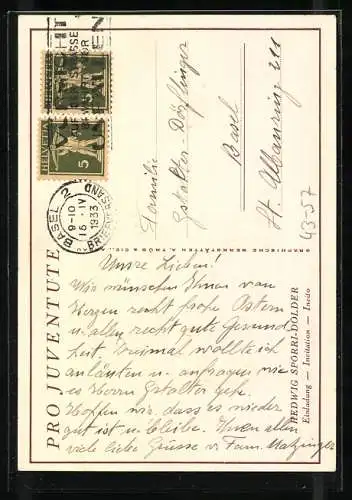 PRO JUVENTUTE
HELVETIA 5
HELVETIA 5
BASEL 2
9-10
16. IV
1933
BRIEFVERSAND
Familie
Gstalter-Dörflinger
Basel
St. Albanring 211
43-57
Unsre Lieben!
Wir wünschen Ihnen von
Herzen recht frohe Ostern
u. allen recht gute Gesund
heit. Dreimal wollte ich
anläuten u. anfragen wie
es Herrn Gstalter geht.
Hoffen wir, dass es wieder
gut ist u. bleibe. Ihnen allen
viele liebe Grüsse v. Fam. Matzinger
HEDWIG SPÖRRI-DOLDER
Einladung — Invitation — Invito